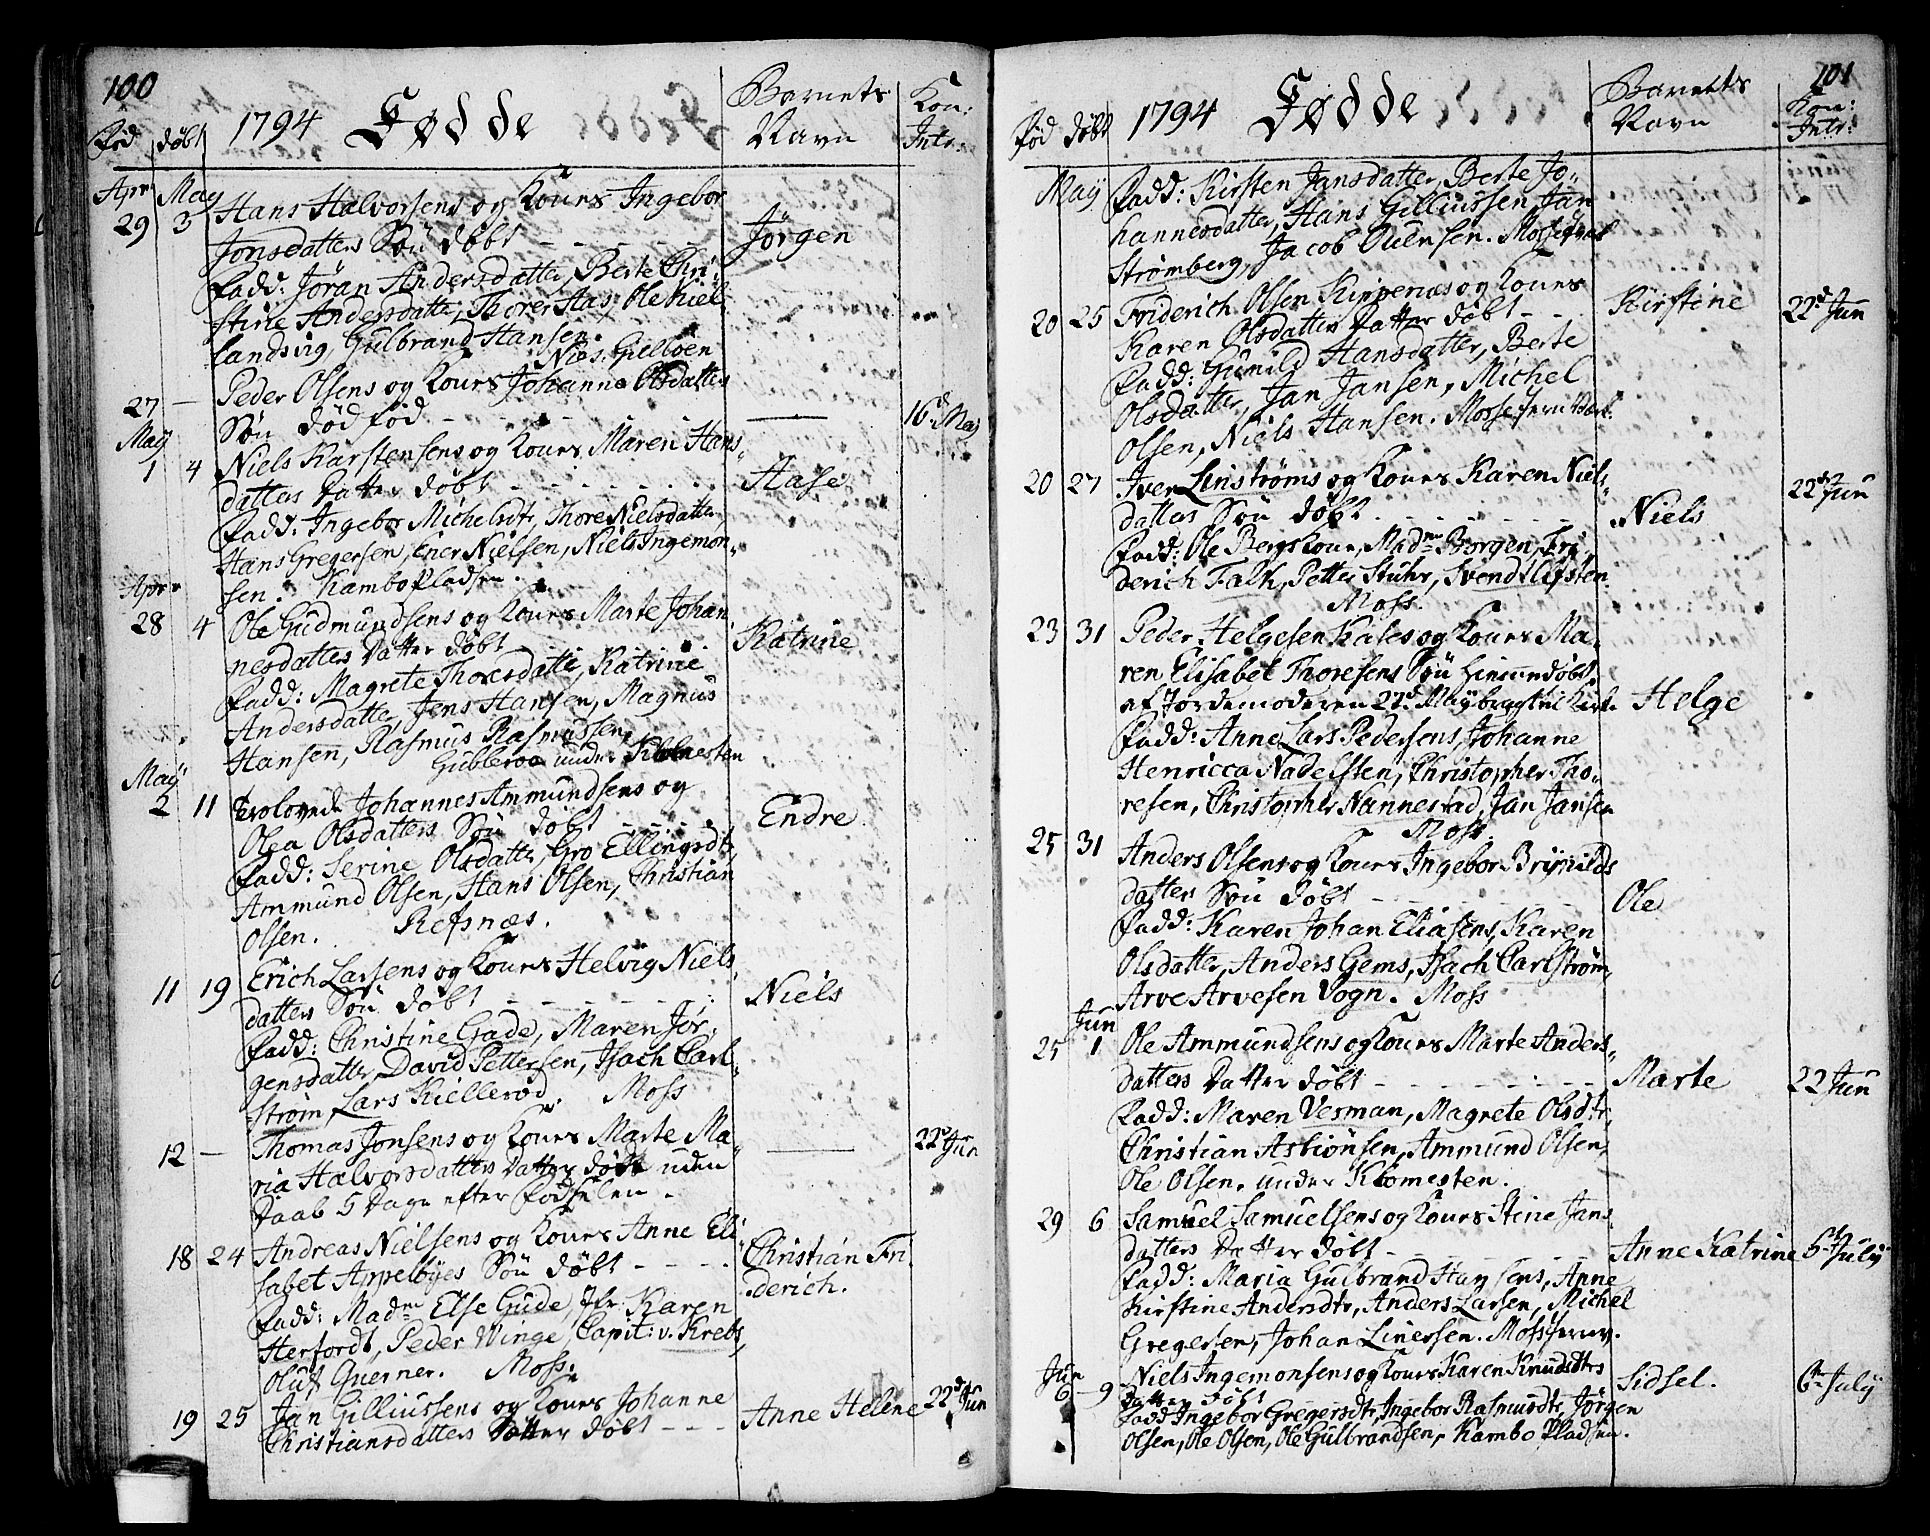 100
Fød døbt 1794 Fødde Barnets Navn Kon: Intr:
Apr May
29 3 Hans Halvorsens og Kones Ingebor
Jonsdatters Søn døbt - - - - Jørgen
Fadd: Jøran Andersdatter, Berte Chri-
stine Andersdatter, Thorer Aas, Ole Kiel-
landsvig, Gulbrand Hansen.
Nies. Gielloen
27 — Peder Olsens og Kones Johanne Olsdatters
Søn død fød - - - — 16d May
May
1 4 Niels Karstensens og Kones Maren Hans-
datters Datter døbt - - - - Hase
Fadd: Ingebor Michelsdtr, Thore Nielsdatter,
Hans Gregersen, Ener Nielsen, Niels Ingemon-
sen. Kambo Pladsen.
Apr
28 4 Ole Gudmundsens og Kones Marte Johan-
nesdatters Datter døbt Katrine
Fadd: Magrete Thoresdatter, Katrine
Andersdatter, Jens Hansen, Magnus
Hansen, Rasmus Rasmussen,
Gubleroe under Klomesten
May
2 11 Trolovede Johannes Ammundsens og
Olea Olsdatters Søn døbt - - - Endre
Fadd: Serine Olsdatter, Gro Ellingsdtr,
Ammund Olsen, Hans Olsen, Christian
Olsen. Refsnæs.
11 19 Erich Larsens og Kones Helvig Niels-
datters Søn døbt - - - - Niels
Fadd: Christine Gade, Maren Jør-
gensdatter, David Pettersen, Isach Carl-
strøm, Lars Kiellerød. Moss
12 — Thomas Jonsens og Kones Marte Ma- — 22d Jun
ria Halvorsdatters Datter død uden
Daab 5 Dage efter Fødselen.
18 24 Andreas Nielsens og Kones Anne Eli-
sabet Appelbyes Søn døbt - - - Christian Fri-
derich.
Fadd: Madme Else Gude, Jfr Karen
Herfordt, Peder Winge, Capit: v. Krebs,
Oluf Guerner. Moss.
19 25 Jan Gilliussens og Kones Johanne
Christiansdatters Datter døbt - - - Anne Helene 22d Jun
101
Fød døbt 1794 Fødde Barnets Navn Kon: Intr:
May Fadd: Kirsten Jansdatter, Berte Jo-
hannesdatter, Hans Gilliussen, Jan
Strømberg, Jacob Ouensen.
20 25 Friderich Olsen Kippenæs og Kones Kirstine 22d Jun
Karen Olsdatters Datter døbt - -
Fadd: Gunild Hansdatter, Berte
Olsdatter, Jan Jansen, Michel
Olsen, Niels Hansen. Mosse Jern Værk.
20 27 Iver Linstrøms og Kones Karen Niels- 22de Jun
datters Søn døbt - - - - Niels
Fadd: Ole Bergs Kone, Madme Borgen, Fri-
derich Falk, Petter Stuhr, Svend Clifsten
Moss.
23 31 Peder Helgesen Kales og Kones Ma-
ren Elisabet Thoresens Søn hiemmedøbt
af Jordemoderen 27d May bragt til Kirk. Helge
Fadd: Anne Lars Pedersens, Johanne
Henricca Nadelsten, Christopher Tho-
resen, Christopher Nannestad, Jan Jansen
Moss.
25 31 Anders Olsens og Kones Ingebor Brynilds-
datters Søn døbt - - - - Ole
Fadd: Karen Johan Eliasens, Karen
Olsdatter, Anders Gems, Isach Carlstrøm,
Arve Arvesen Vogn. Moss
Jun
25 1 Ole Ammundsens og Kones Marte Anders-
datters Datter døbt - - - - Marte 22 Jun
Fadd: Maren Vesman, Magrete Olsdtr,
Christian Asbiønsen, Ammund Olsen,
Ole Olsen. under Klomesten.
29 6 Samuel Samuelsens og Kones Stine Jans-
datters Datter døbt - - - - Anne Katrine 6te July
Fadd: Maria Gulbrand Hansens, Anne
Kirstine Andersdtr, Anders Larsen, Michel
Gregersen, Johan Linersen. Moss Jernv.
Jun
6 - 9 Niels Ingemonsens og Kones Karen Knudsdtrs
Datter døbt Sidsel. 6te July
Fadd Ingebor Gregersdtr, Ingebor Rasmusdtr, Jørgen
Olsen, Ole Olsen, Ole Gulbrandsen, Kambo Pladsen.